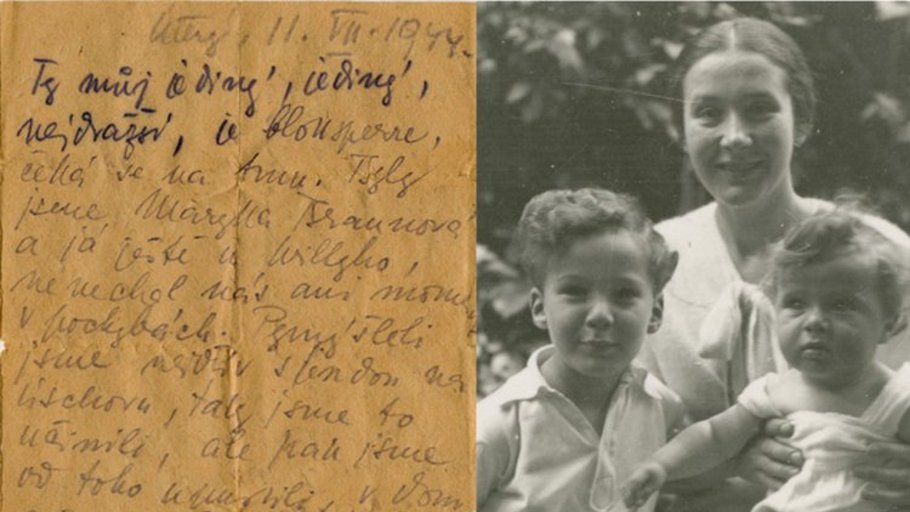 Úterý, 11. VII. 1944.
Ty můj jediný, jediný,
nejdražší, je blocksperre,
čeká se na tmu. Byly
jsme Maryna Braunová
a já ještě u Willyho,
nenechal nás ani
v pochybách. Pomýšleli
jsme nejdřív s Jendou na
úschovu, taky jsme to
učinili, ale pak jsme
od toho upustili, v